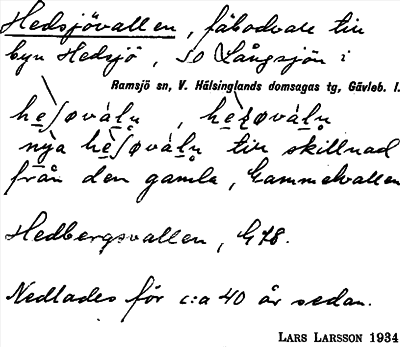 Hedsjövallen, fäbodvall till
byn Hedsjö, SO Långsjön i
Ramsjö sn, V. Hälsinglands domsagas tg, Gävleb. l.
he̲ʃøvàl̲n̥, he̲ʐøvàl̲n̥
nỳa hèʃøvál̲n̥ till skillnad
från den gamla, Gammelvallen
Hedbergsvallen, G78.
Nedlades för c:a 40 år sedan.
LARS LARSSON 1934